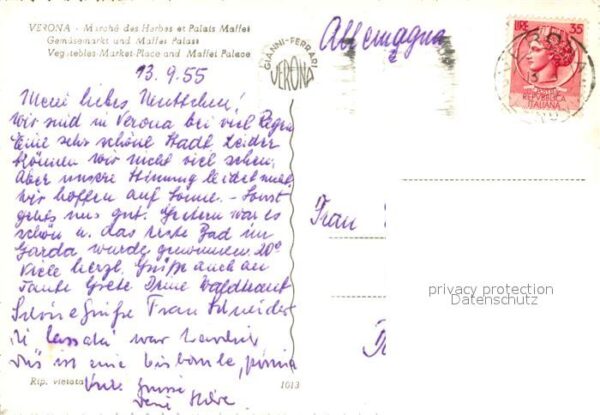 VERONA - Marché des Herbes et Palais Maffei
Gemüsemarkt und Maffei Palast
Vegetebles-Market-Place and Maffei Palace
13.9.55
Allemagna
GIANNI-FERRARI
VERONA
LIRE 35
REPVBBLICA
ITALIANA
Mein liebes Muttchen!
Wir sind in Verona bei viel Regen
Eine sehr schöne Stadt leider
können wir nicht viel sehen.
Aber unsere Stimmung leidet nicht
wir hoffen auf Sonne. - Sonst
gehts uns gut. Gestern war es
schön u. das erste Bad im
Garda wurde genommen. 20°
Viele herzl. Grüße auch an
Tante Grete Deine Waldtraut
Schöne Grüße Frau Schneider
war
Das ist eine
Grüsse
Frau
privacy protection
Datenschutz
Rip. vietata
1013